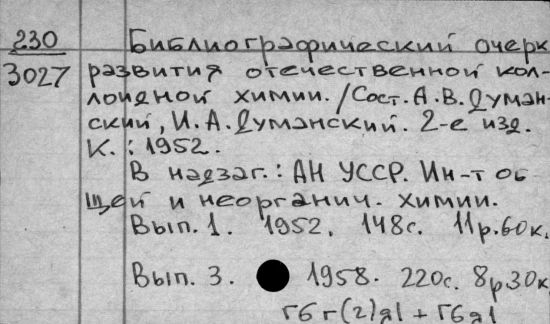 230 Библиографический очерк
3027 развития отечественной кол-
лоидной химии. /Сост. А.В. Думан-
ский, И.А. Думанский. 2-е изд.
К.: 1952.
В надзаг.: АН УССР. Ин-т об
щей и неорганич. химии.
Вып. 1. 1952. 148с. 11р.60к.
Вып. 3. 1958. 220с. 8р30к
Г6г(2)я1 + Г6я1